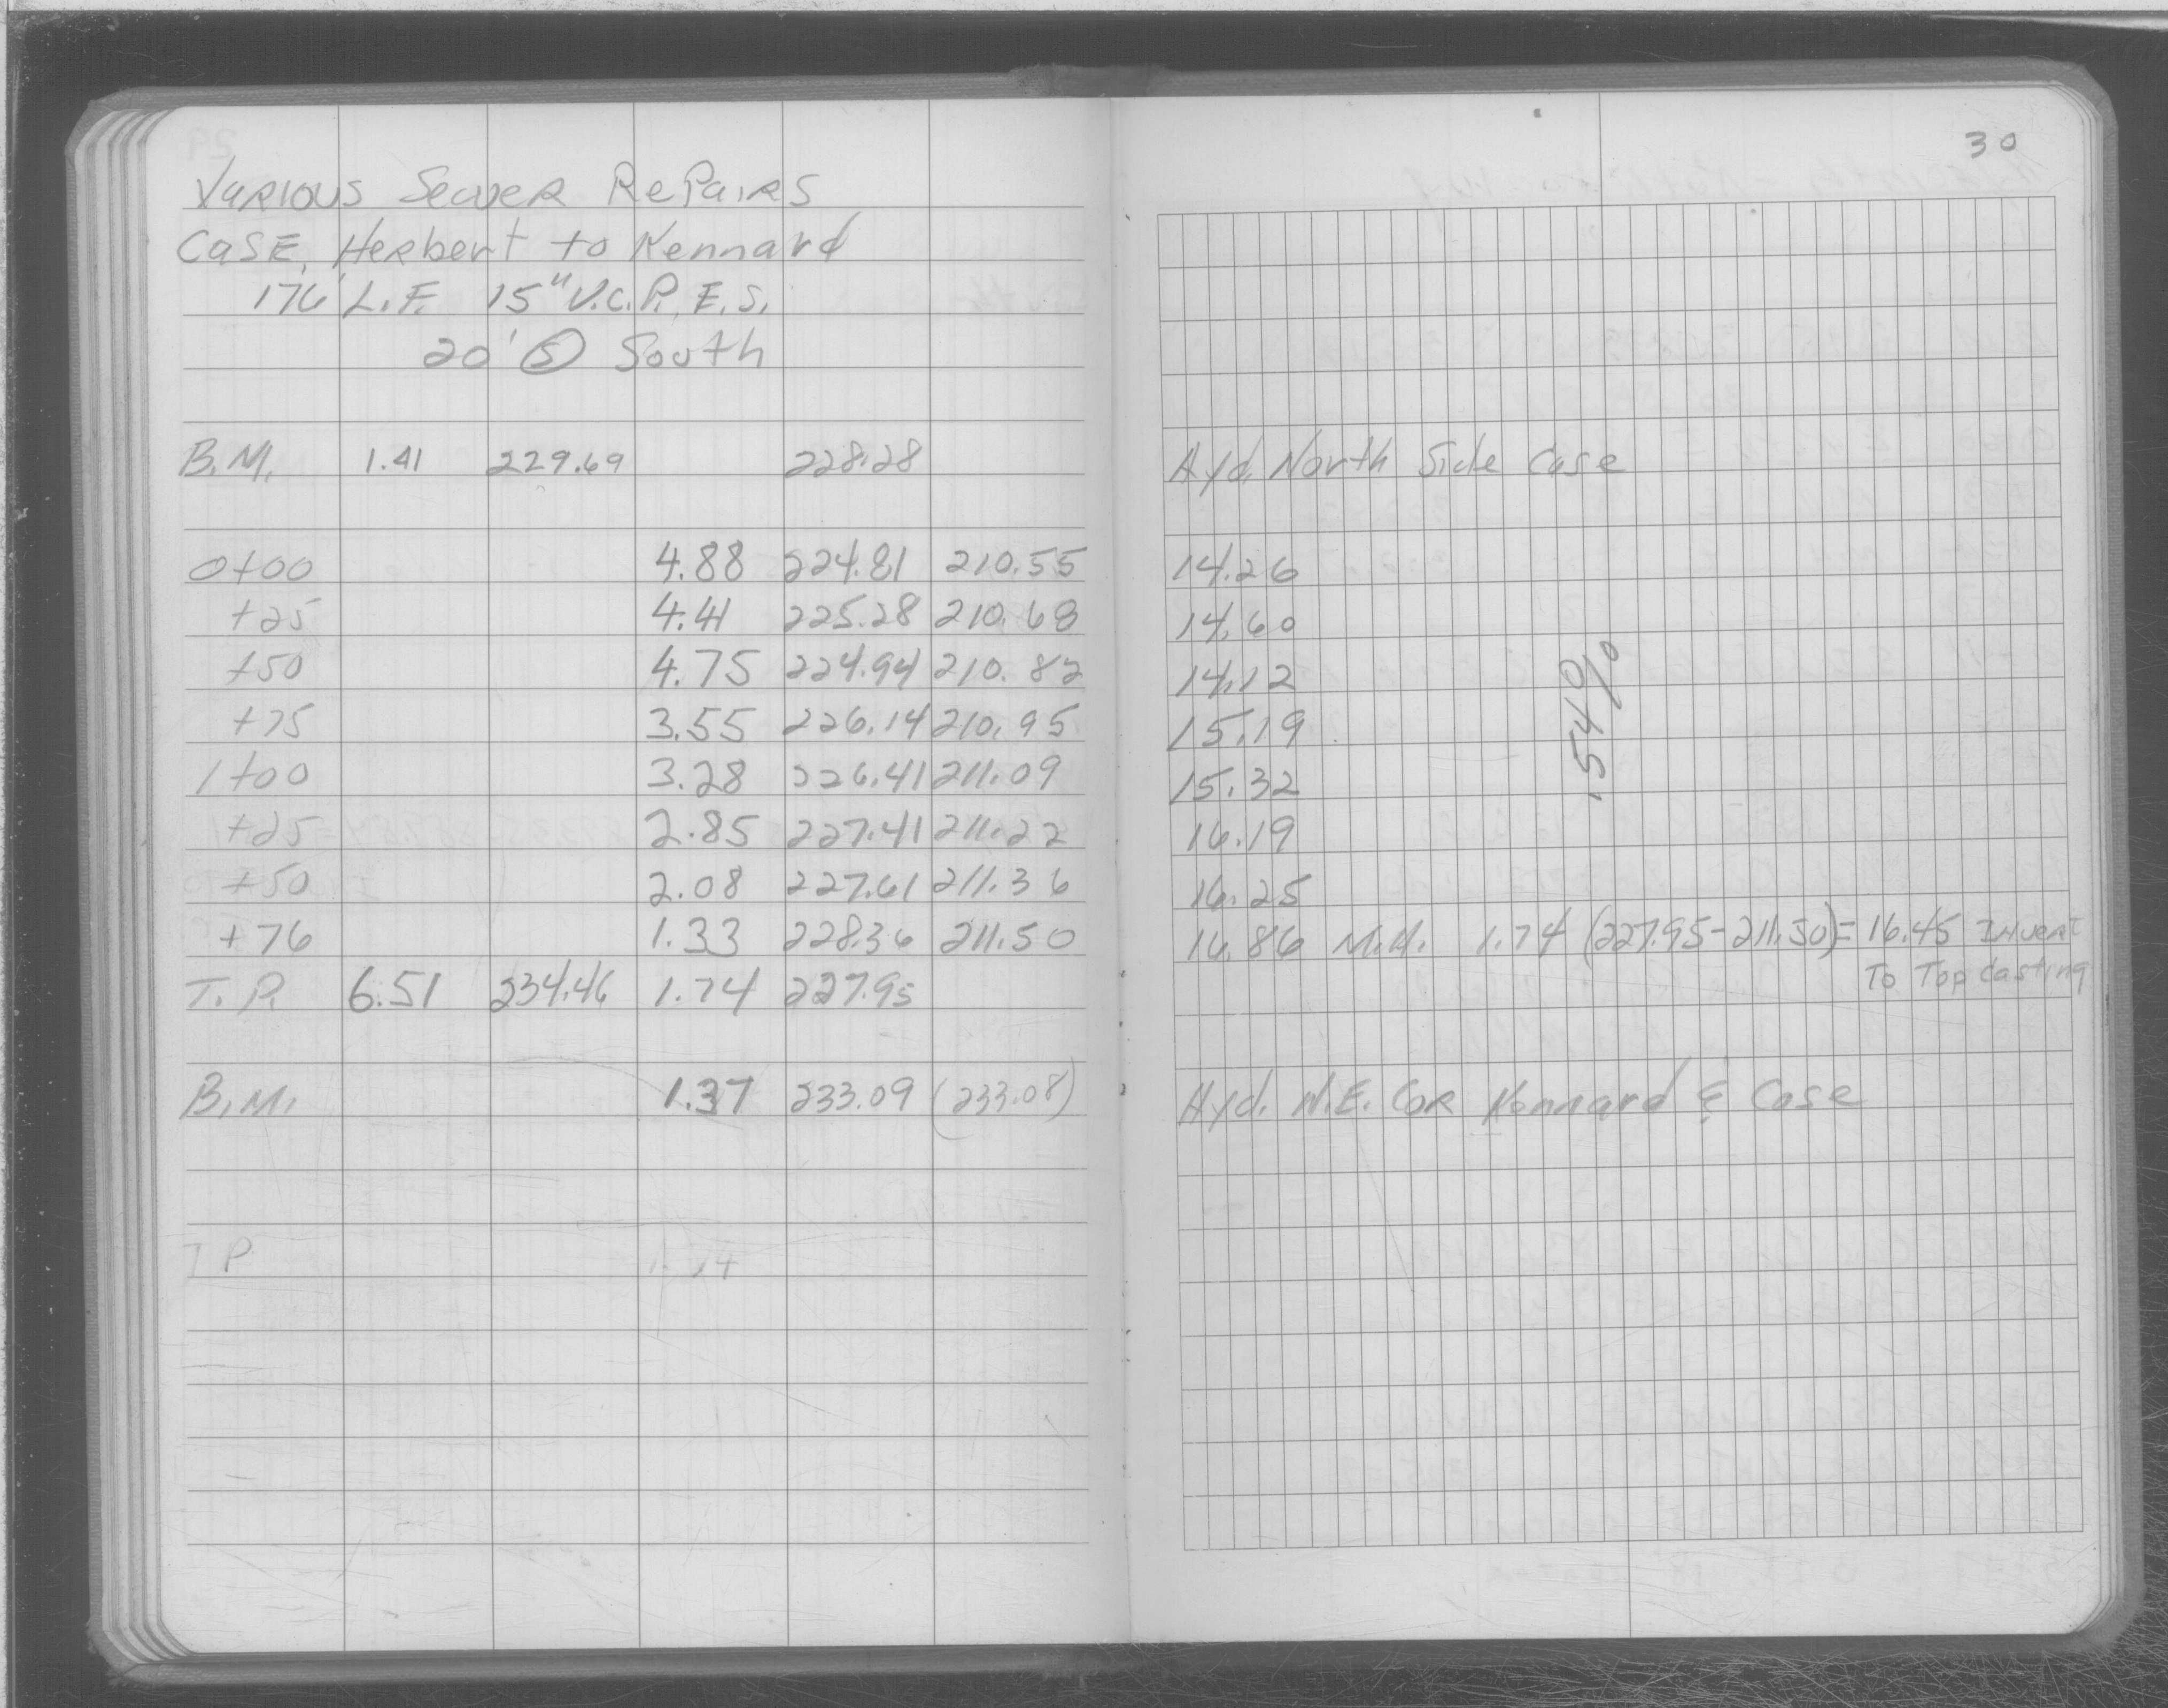 30
Various Sewer Repairs
Case, Herbert to Kennard
176' L.F. 15" V.C.P. E.S.
20' S South
B.M. 1.41 229.69 228.28 Hyd. North Side Case
0+00 4.88 224.81 210.55 14.26
+25 4.41 225.28 210.68 14.60
+50 4.75 224.94 210.82 14.12
+75 3.55 226.14 210.95 15.19
1+00 3.28 226.41 211.09 15.32
+25 2.85 227.41 211.22 16.19
+50 2.08 227.61 211.36 16.25
+76 1.33 228.36 211.50 16.86 M.H. 1.74 (227.95-211.50)= 16.45 Invert
To Top Casting
.54%
T.P. 6.51 234.46 1.74 227.95
B.M. 1.37 233.09 (233.08) Hyd. N.E. Cor Kennard & Case
T P 1.74